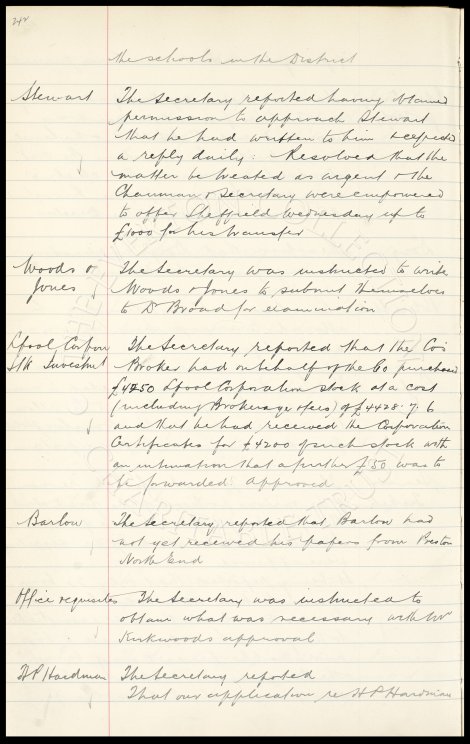 242
the schools in the District
Stewart The Secretary reported having obtained
permission to approach Stewart
that he had written to him & expected
a reply daily: Resolved that the
matter be treated as urgent & the
Chairman & Secretary were empowered
to offer Sheffield Wednesday up to
£1000 for his transfer
Woods & The Secretary was instructed to write
Jones Woods & Jones to submit themselves
to Dr Broad for examination
Lpool Corpon The Secretary reported that the Co's
Stk Investmt Broker had on behalf of the Co purchased
£4250 Lpool Corporation Stock at a cost
(including Brokerage & fees) of £4428.7.6
and that he had received the Corporation
Certificates for £4200 of such stock with
an intimation that a further £50 was to
be forwarded approved
Barlow The Secretary reported that Barlow had
not yet received his papers from Preston
North End
Office requisites The Secretary was instructed to
obtain what was necessary with Mr
Kirkwoods approval
H P Hardman The Secretary reported
That our application re H P Hardman